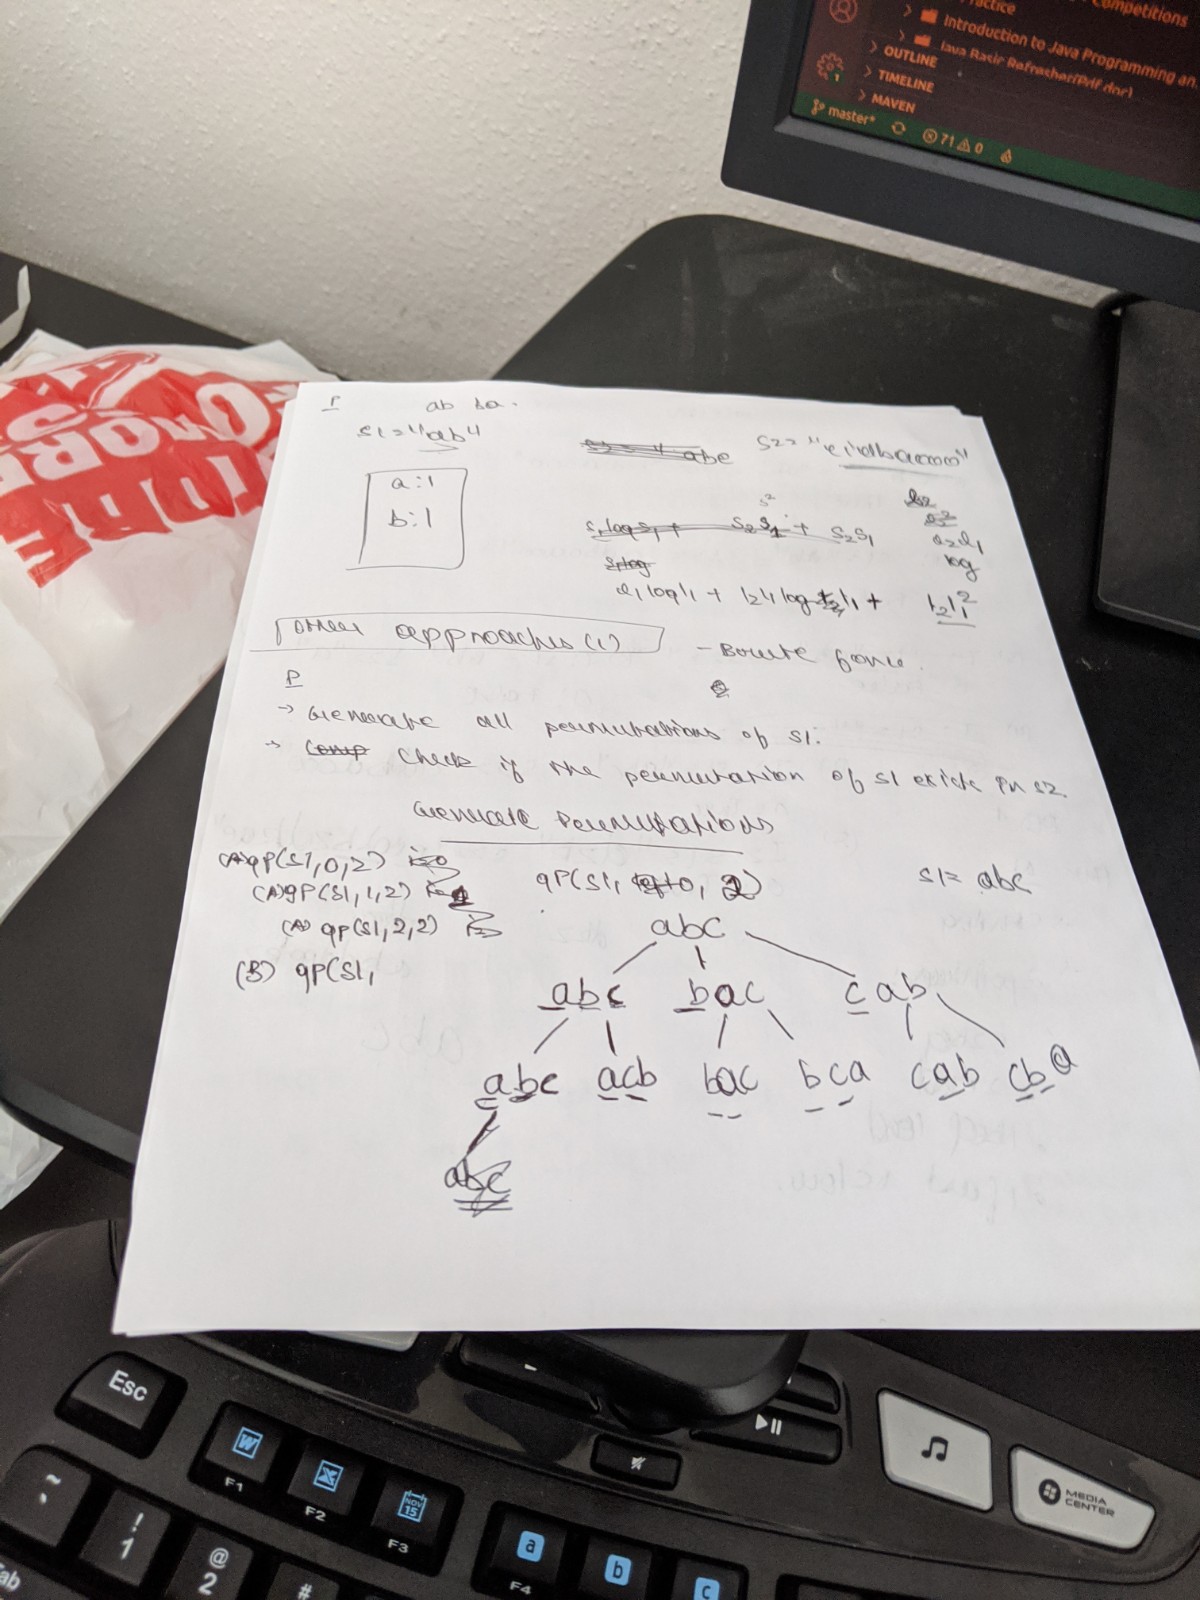 Practice
Competitions
Introduction to Java Programming an
Java Basic Refresher(Pdf,doc)
OUTLINE
TIMELINE
MAVEN
master*
71 0
1
P ab ba.
S1="ab"
abc S2="eidbaooo"
a:1
b:1
S1logS1+ S2S1 + S2S1
S1log
log
l1 log l1 +
Other approaches (1)
- Brute force.
P
→ Generate all permutations of S1.
→ Comp Check if the permutation of S1 exists in S2
Generate Permutations
(A) gP(S1,0,2) i=0
(A) gP(S1,1,2)
(A) gP(S1,2,2)
(B) gP(S1,
gP(S1, 0, 2)
S1= abc
abc
abc bac cab
abc acb bac bca cab cba
abc
MORE
Esc
F1
F2
F3
F4
NOV
15
a
b
c
~
!
1
@
2
#
MEDIA
CENTER